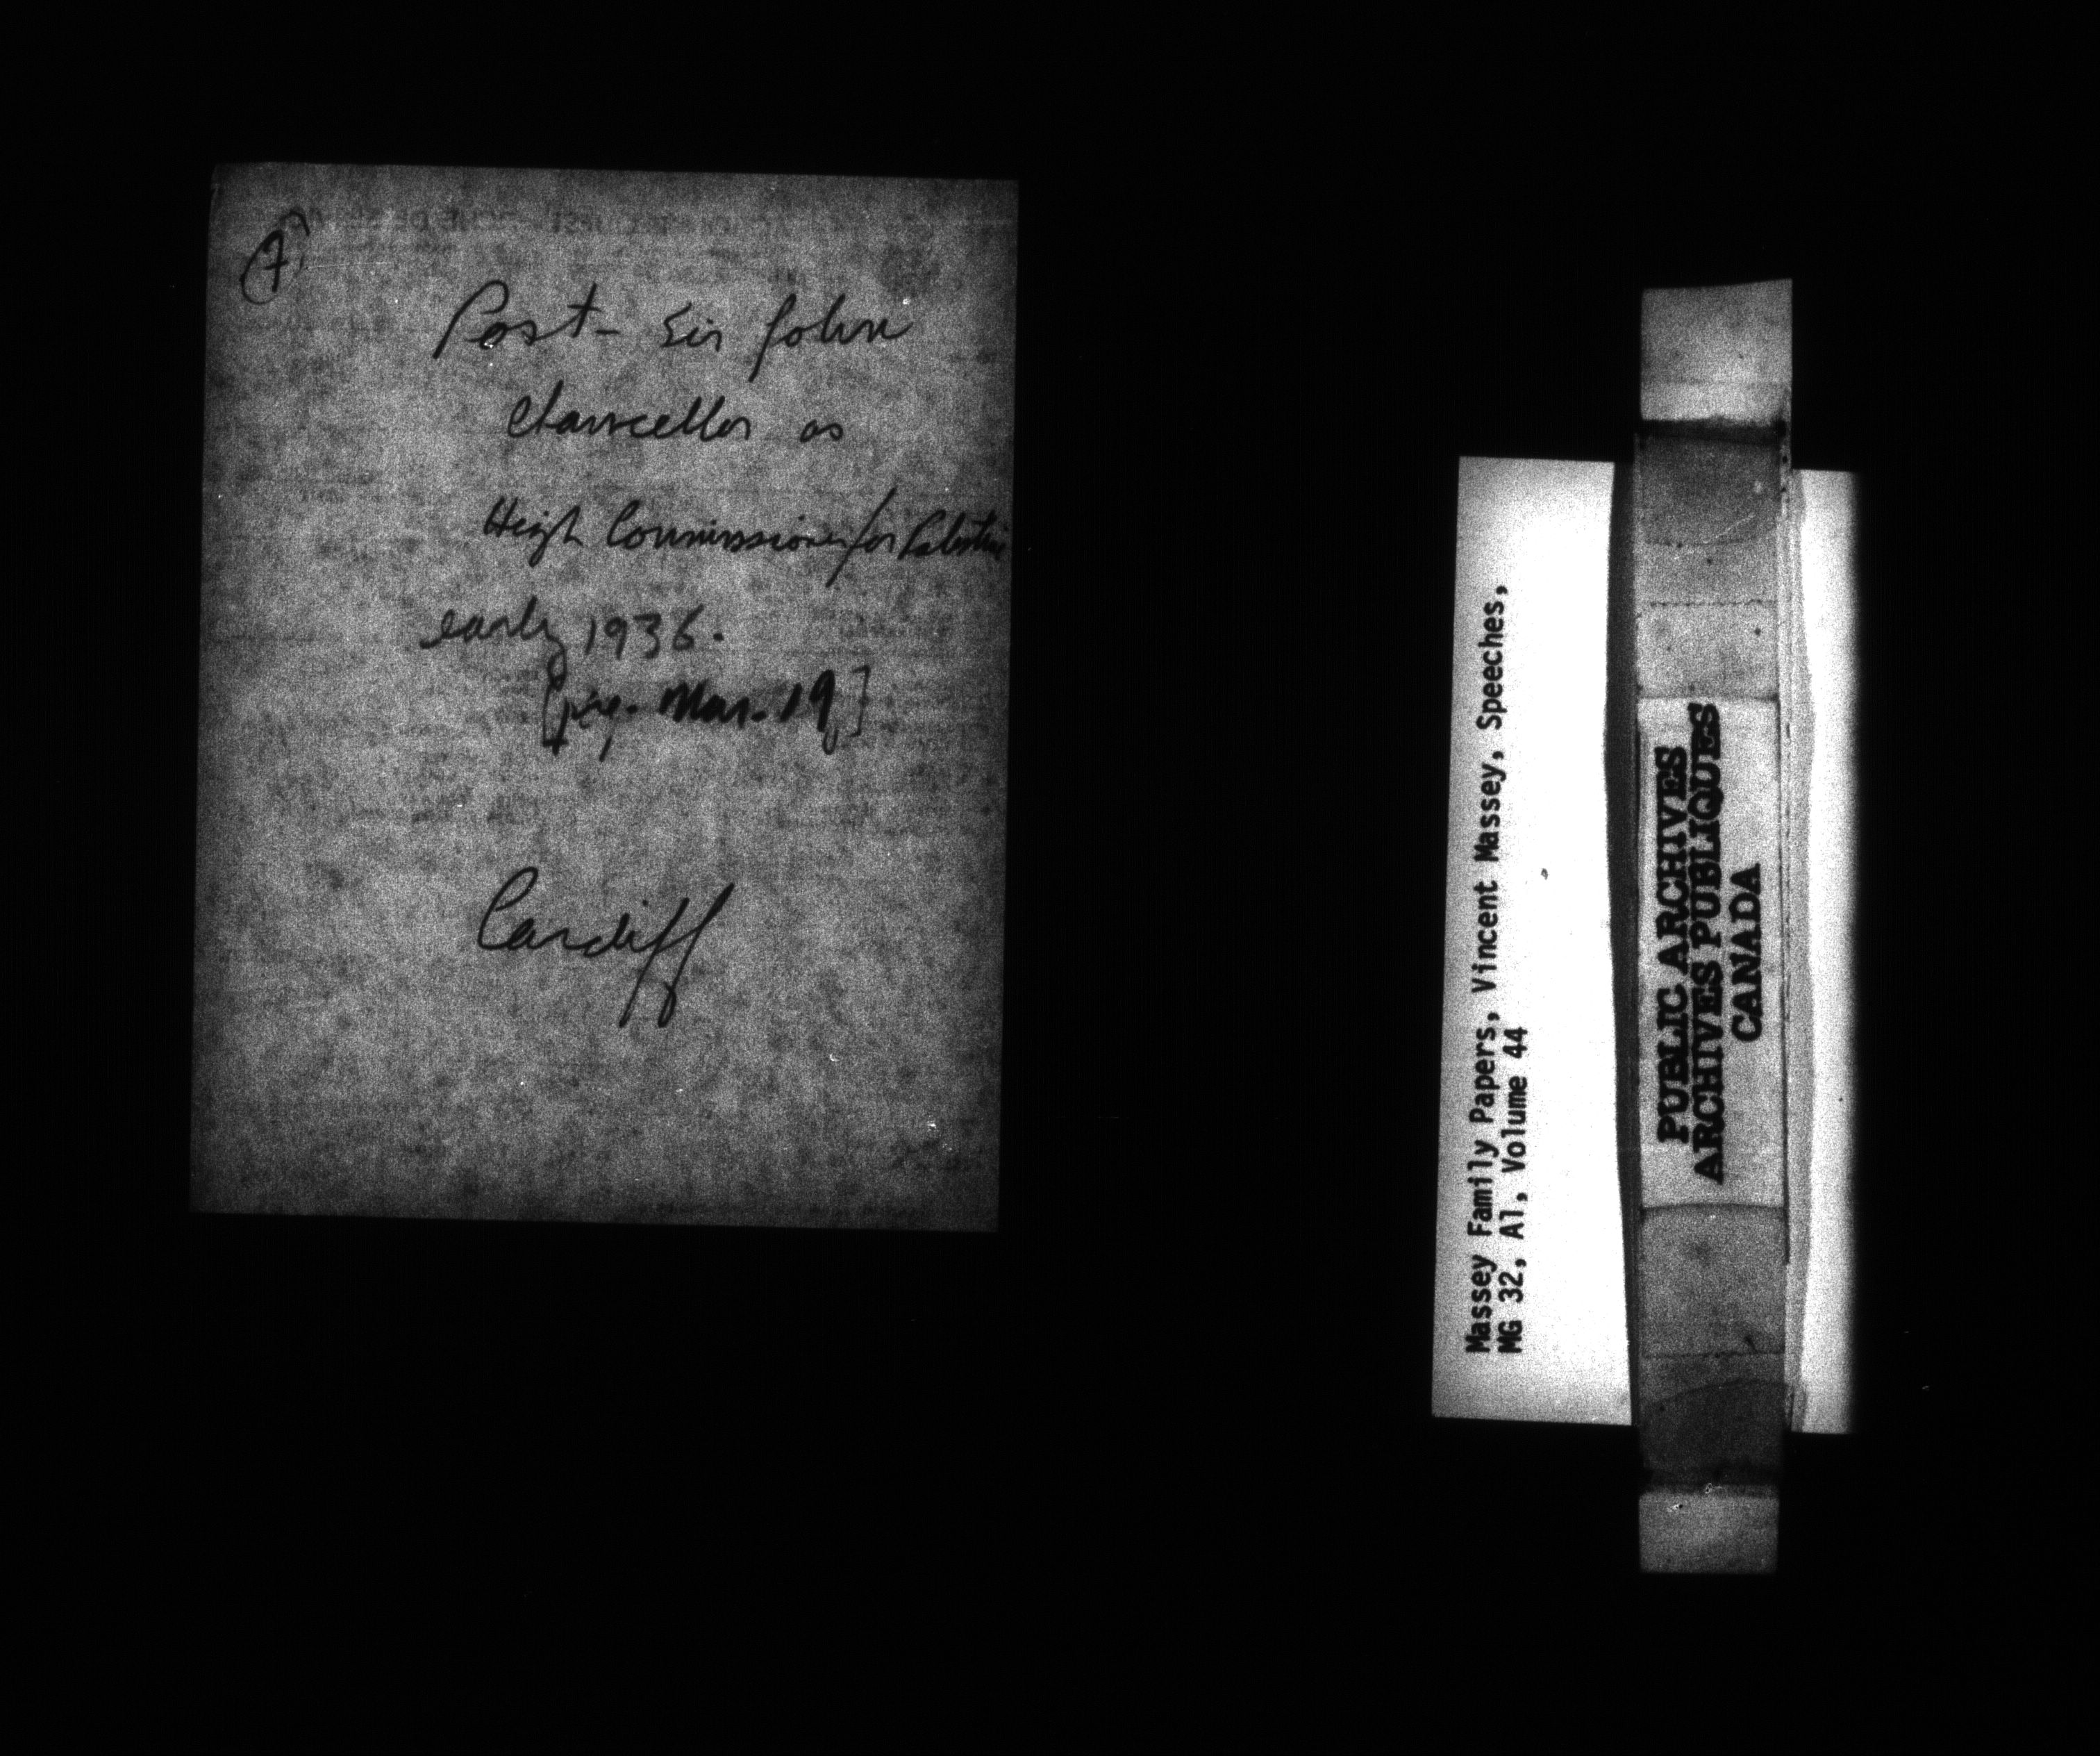 (7)
Post- Sir John
Chancellor as
High Commissioner for Palestine
early 1936.
Mar. 19]
Cardiff
Massey Family Papers, Vincent Massey, Speeches,
MG 32, A1, Volume 44
PUBLIC ARCHIVES
ARCHIVES PUBLIQUES
CANADA